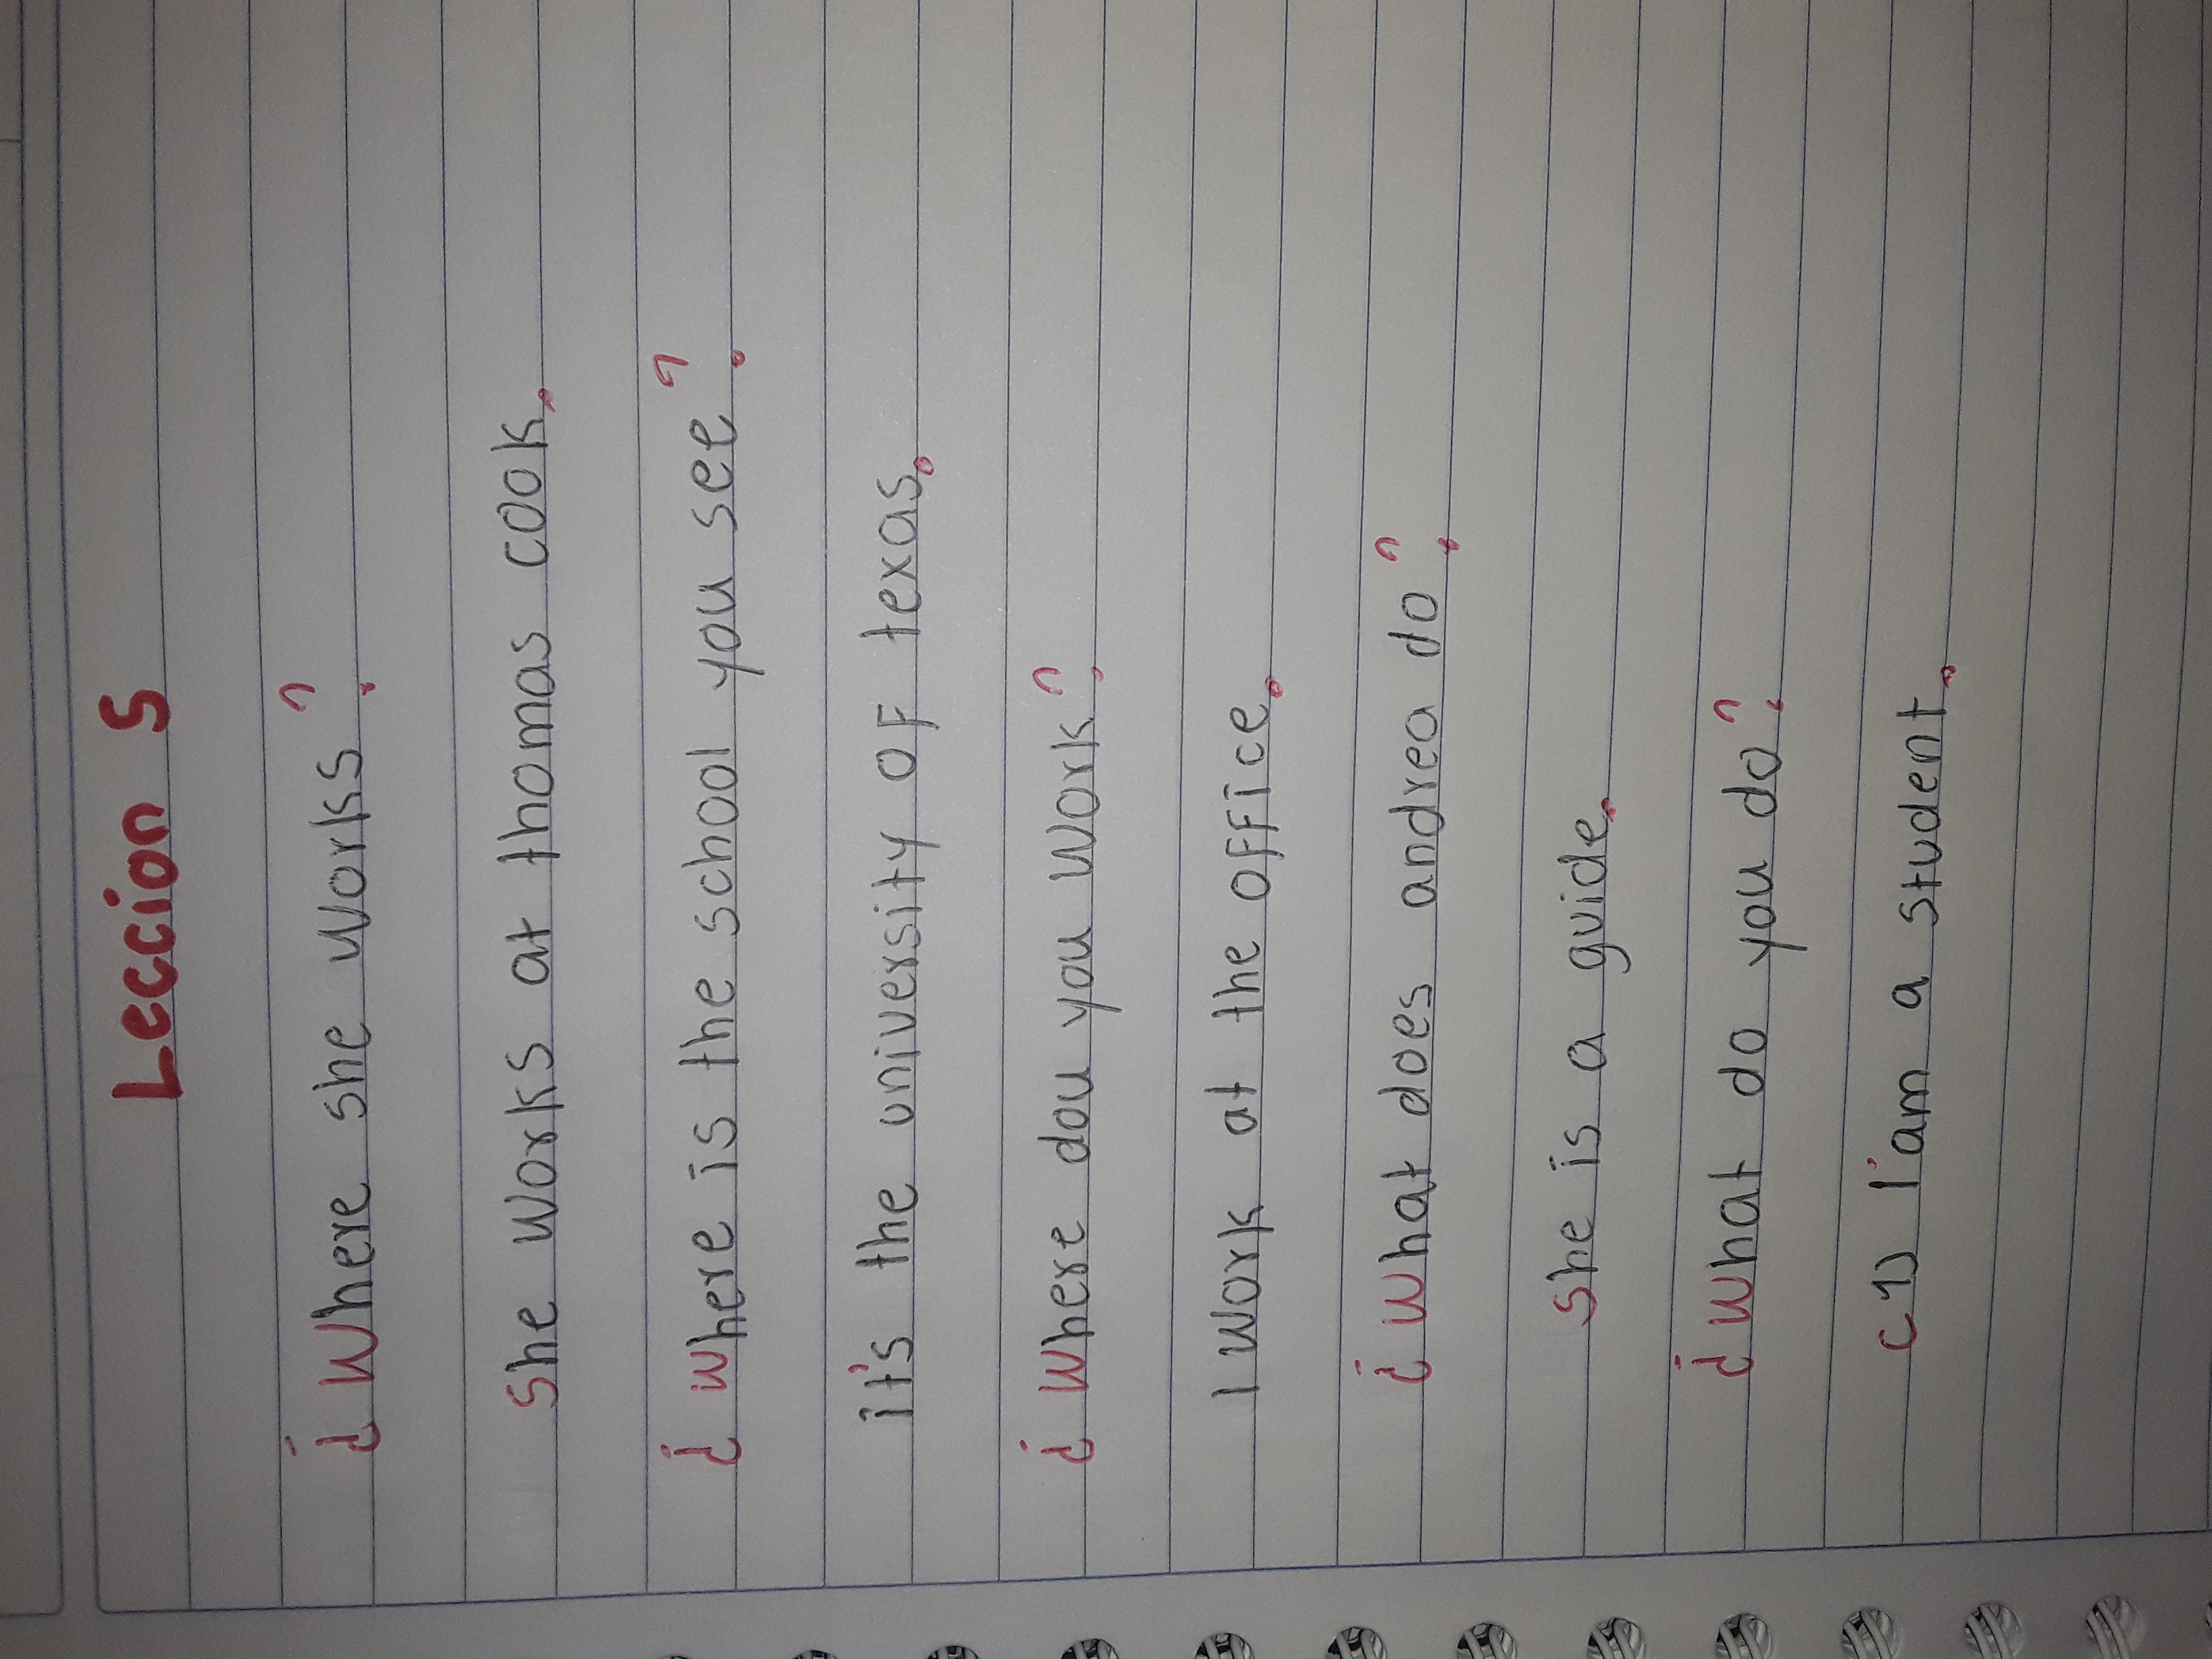 Leccion 5
¿Where she works?
She works at thomas cook.
¿where is the school you see?
it's the university of texas.
¿where dou you work?
I work at the office.
¿what does andrea do?
she is a guide.
¿what do you do?
I'am a student.